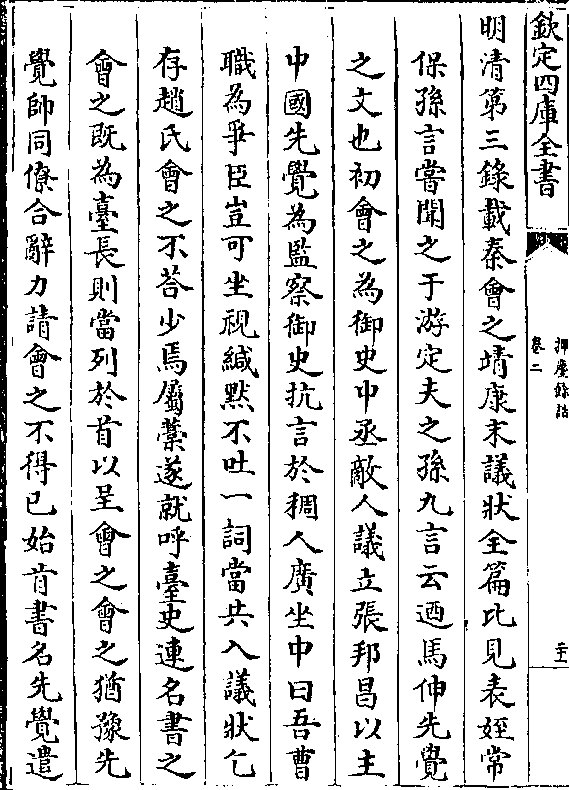 欽定四庫全書
揮麈餘話
卷二
二十二
明清第三錄載秦會之靖康末議狀全篇比見表姪常
保孫言嘗聞之于游定夫之孫九言云迺馬伸先覺
之文也初會之為御史中丞敵人議立張邦昌以主
中國先覺為監察御史抗言於稠人廣坐中曰吾曹
職為爭臣豈可坐視緘默不吐一詞當共入議狀乞
存趙氏會之不荅少焉屬藁遂就呼臺吏連名書之
會之既為臺長則當列於首以呈會之會之猶豫先
覺帥同僚合辭力請會之不得已始肯書名先覺遣